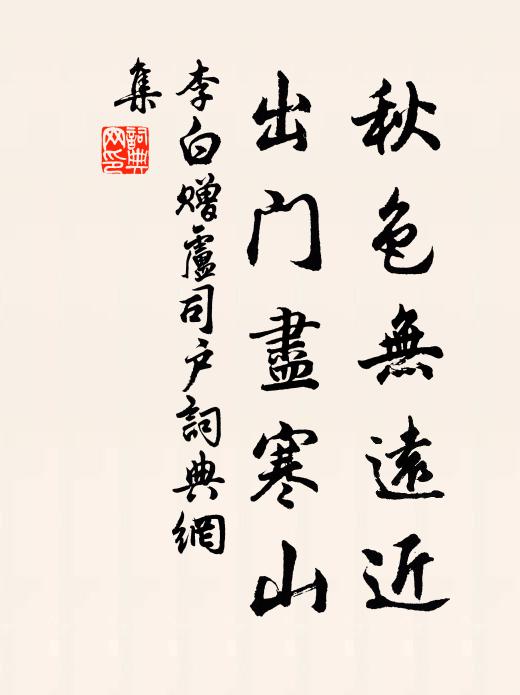 秋色無遠近
出門盡寒山
李白贈盧司户詞典網
集
詞典网印